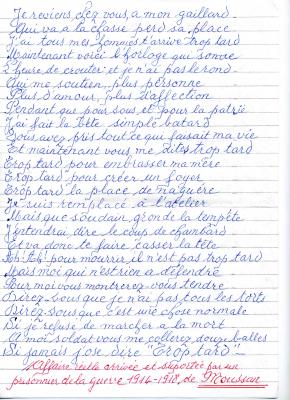 Je reviens chez vous, a mon gaillard
Qui va a la chasse perd sa place
J'ai tous mes hommes t'arrive trop tard
Maintenant voici l'horloge qui sonne
L'heure de crouter et je n'ai pas le rond
Qui me soutien, plus personne
Plus d'amour, plus d'affection
Pendant qui pour vous, et pour la patrie
J'ai fait la bête simple batard
Vous avez pris tout ce qui faisait ma vie
Et maintenant vous me dites trop tard
Trop tard pour embrasser ma mère
Trop tard pour créer un foyer
Trop tard la place de naguère
Je suis remplacé a l'atelier
Mais que soudain, gronde la tempête
J'entendrai dire le coup de chambard
Et va donc te faire casser la tête
pour mourrir, il n'est pas trop tard
Mais moi qui n'est rien a défendre
Pour moi vous montrerez-vous tendre
Direz-vous que je n'ai pas tous les torts
Direz-vous que c'est une chose normale
Si je refuse de marcher a la mort
A moi soldat vous me collerez douze balles
Si jamais j'ose dire "Trop tard"
Affaire réelle arrivée et supportée par un
prisonnier de la guerre 1914-1918, de Moussan